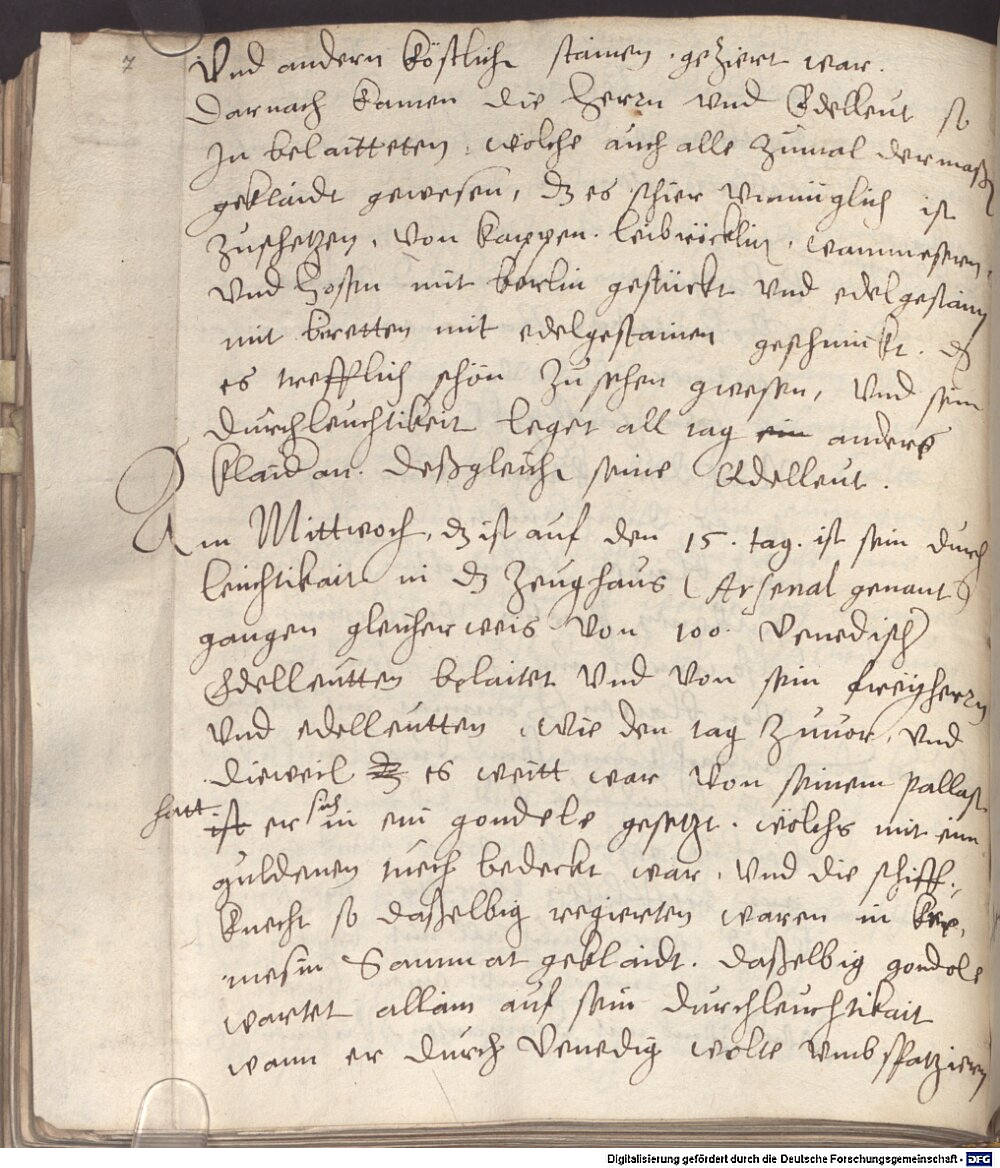 7
Vnd andern köstliche stainen . geziert war .
Darnach kamen die Herrn vnd Edelleut so
In belaitteten . wölche auch alle zumal dermaßen
geklaidt gewesen, dz es schier vnmüglich ist
zuschetzen, von kappen . leibröcklin, wammesern,
vnd Hosen mit berlin gestückt vnd edelgestain
mit beretten mit edelgestainen geschmückt . dz
es trefflich schön zusehen gwesen, vnd sein
Durchleuchtikeit leget all tag ein anders
klaid an . deßgleiche seine Edelleut .
Am Mittwoch, dz ist auf den 15 . tag . ist sein durch
leuchtikait in dz Zeughaus (Arsenal genant)
gangen gleicher weis von 100 . Venedischen
Edelleütten belaitet vnd von sein freyherrn
vnd edelleutten, wie den tag zuuor, vnd
dieweil dz es weitt war von seinem pallast
hatt ist er sich in ein gondele gesetzt . wölchs mit eim
guldenen tuech bedeckt war, vnd die schiff-
knecht so daßelbig regierten waren in ker,
mesin Sammat geklaidt . daßelbig gondole
wartet allain auf sein durchleuchtikait
wann er durch Venedig wolte vmbspatziern
Digitalisierung gefördert durch die Deutsche Forschungsgemeinschaft - DFG